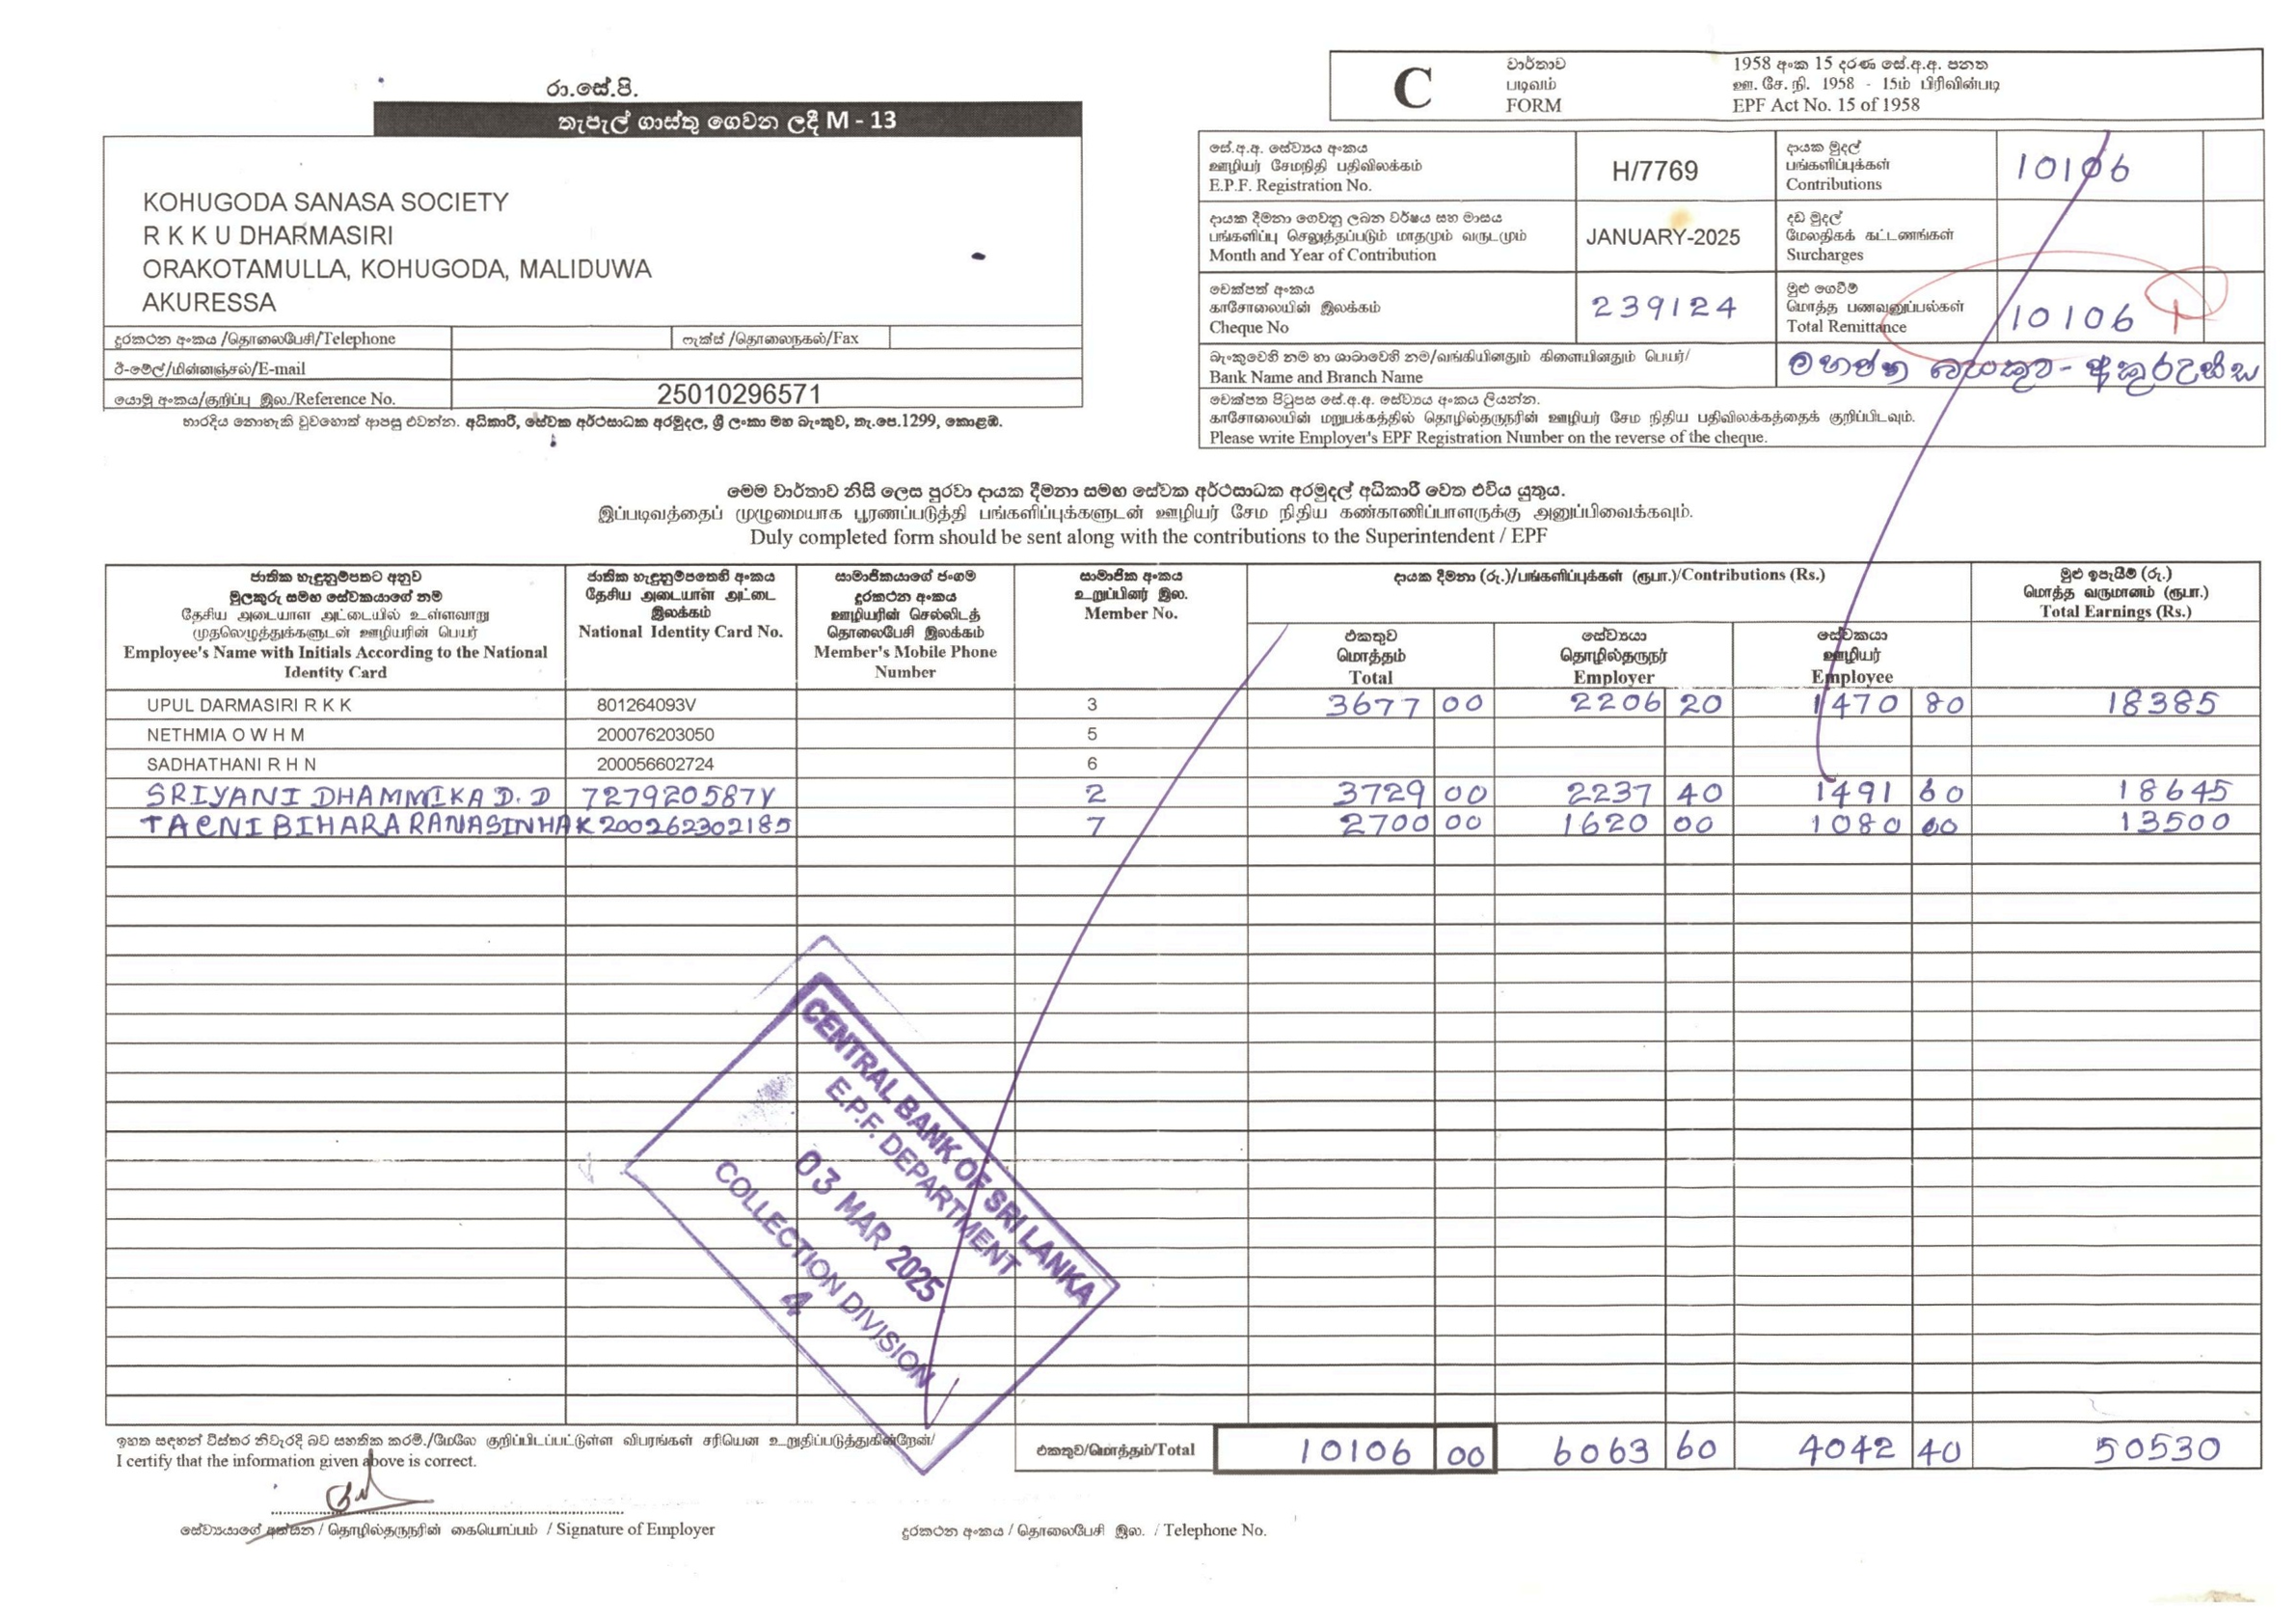 රා.සේ.පි.
තැපැල් ගාස්තු ගෙවන ලදී M - 13
KOHUGODA SANASA SOCIETY
R K K U DHARMASIRI
ORAKOTAMULLA, KOHUGODA, MALIDUWA
AKURESSA
දුරකථන අංකය /தொலைபேசி/Telephone
ෆැක්ස් /தொலைநகல்/Fax
ඊ-මේල්/மின்னஞ்சல்/E-mail
යොමු අංකය/குறிப்பு இல./Reference No. 25010296571
භාරදිය නොහැකි වුවහොත් ආපසු එවන්න. අධිකාරී, සේවක අර්ථසාධක අරමුදල, ශ්‍රී ලංකා මහ බැංකුව, තැ.පෙ.1299, කොළඹ.
C
වාර්තාව
படிவம்
FORM
1958 අංක 15 දරණ සේ.අ.අ. පනත
ஊ. சே. நி. 1958 - 15ம் பிரிவின்படி
EPF Act No. 15 of 1958
සේ.අ.අ. සේව්‍යය අංකය
ஊழியர் சேமநிதி பதிவிலக்கம்
E.P.F. Registration No.
H/7769
දායක මුදල්
பங்களிப்புக்கள்
Contributions
10106
දායක දීමනා ගෙවනු ලබන වර්ෂය සහ මාසය
பங்களிப்பு செலுத்தப்படும் மாதமும் வருடமும்
Month and Year of Contribution
JANUARY-2025
දඩ මුදල්
மேலதிகக் கட்டணங்கள்
Surcharges
චෙක්පත් අංකය
காசோலையின் இலக்கம்
Cheque No
239124
මුළු ගෙවීම්
மொத்த பணவனுப்பல்கள்
Total Remittance
10106
බැංකුවෙහි නම හා ශාඛාවෙහි නම/வங்கியினதும் கிளையினதும் பெயர்/
Bank Name and Branch Name
මහජන බැංකුව - අකුරැස්ස
චෙක්පත පිටුපස සේ.අ.අ. සේව්‍යය අංකය ලියන්න.
காசோலையின் மறுபக்கத்தில் தொழில்தருநரின் ஊழியர் சேம நிதிய பதிவிலக்கத்தைக் குறிப்பிடவும்.
Please write Employer's EPF Registration Number on the reverse of the cheque.
මෙම වාර්තාව නිසි ලෙස පුරවා දායක දීමනා සමඟ සේවක අර්ථසාධක අරමුදල් අධිකාරී වෙත එවිය යුතුය.
இப்படிவத்தைப் முழுமையாக பூரணப்படுத்தி பங்களிப்புக்களுடன் ஊழியர் சேம நிதிய கண்காணிப்பாளருக்கு அனுப்பிவைக்கவும்.
Duly completed form should be sent along with the contributions to the Superintendent / EPF
ජාතික හැඳුනුම්පතට අනුව
මුලකුරු සමඟ සේවකයාගේ නම
தேசிய அடையாள அட்டையில் உள்ளவாறு
முதலெழுத்துக்களுடன் ஊழியரின் பெயர்
Employee's Name with Initials According to the National
Identity Card
ජාතික හැඳුනුම්පතෙහි අංකය
தேசிய அடையாள அட்டை
இலக்கம்
National Identity Card No.
සාමාජිකයාගේ ජංගම
දුරකථන අංකය
ஊழியரின் செல்லிடத்
தொலைபேசி இலக்கம்
Member's Mobile Phone
Number
සාමාජික අංකය
உறுப்பினர் இல.
Member No.
දායක දීමනා (රු.)/பங்களிப்புக்கள் (ரூபா.)/Contributions (Rs.)
එකතුව
மொத்தம்
Total
සේව්‍යයා
தொழில்தருநர்
Employer
සේවකයා
ஊழியர்
Employee
මුළු ඉපැයීම් (රු.)
மொத்த வருமானம் (ரூபா.)
Total Earnings (Rs.)
UPUL DARMASIRI R K K 801264093V 3 3677 00 2206 20 1470 80 18385
NETHMIA O W H M 200076203050 5
SADHATHANI R H N 200056602724 6
SRIYANI DHAMMIKA D. D 727920587V 2 3729 00 2237 40 1491 60 18645
TACNI BIHARA RANASINHA K 200262302185 7 2700 00 1620 00 1080 00 13500
CENTRAL BANK OF SRI LANKA
E.P.F. DEPARTMENT
03 MAR 2025
COLLECTION DIVISION
4
ඉහත සඳහන් විස්තර නිවැරදි බව සහතික කරමි./மேலே குறிப்பிடப்பட்டுள்ள விபரங்கள் சரியென உறுதிப்படுத்துகின்றேன்/
I certify that the information given above is correct.
එකතුව/மொத்தம்/Total 10106 00 6063 60 4042 40 50530
සේව්‍යයාගේ අත්සන / தொழில்தருநரின் கையொப்பம் / Signature of Employer
දුරකථන අංකය / தொலைபேசி இல. / Telephone No.